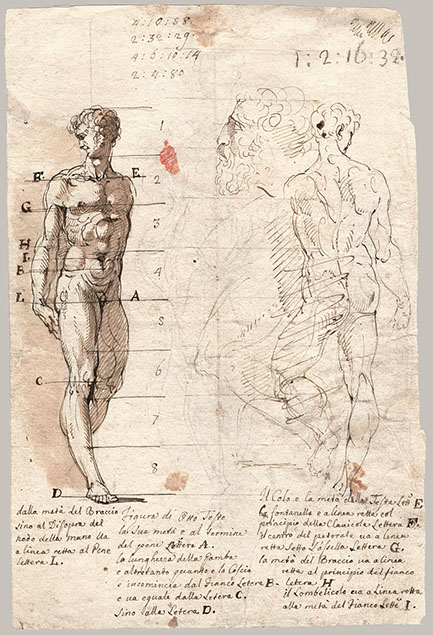 4:10:88
2:32:29:
4:6:10:14
2:4:80
1:2:16:32
1
F E
2
G
3
H
I
B 4
L A
5
6
C
7
8
D
dalla metà del Braccio
sino al Disopra del
nodo della mano va
a linea retta al Pene
lettera L.
Figura di Otto Teste
la Sua metà e al termine
del pene Lettera A.
la lunghezza della Gamba
e altretanto quanto e la Coscia
e incomincia dal Fianco Letera B.
e va equale dalla Letera C.
Sino alla Letera D.
Il Colo e la metà della Testa Lett E
la fontanella e a linea retta col
principio della Clavicola Lettera F.
il centro del pettorale va a linea
retta Sotto l'asella Lettera G.
la metà del Braccio va a linea
retta al principio del fianco
letera H
il Lombelicolo e va a Linea retta
alla metà del Fianco Lett I.